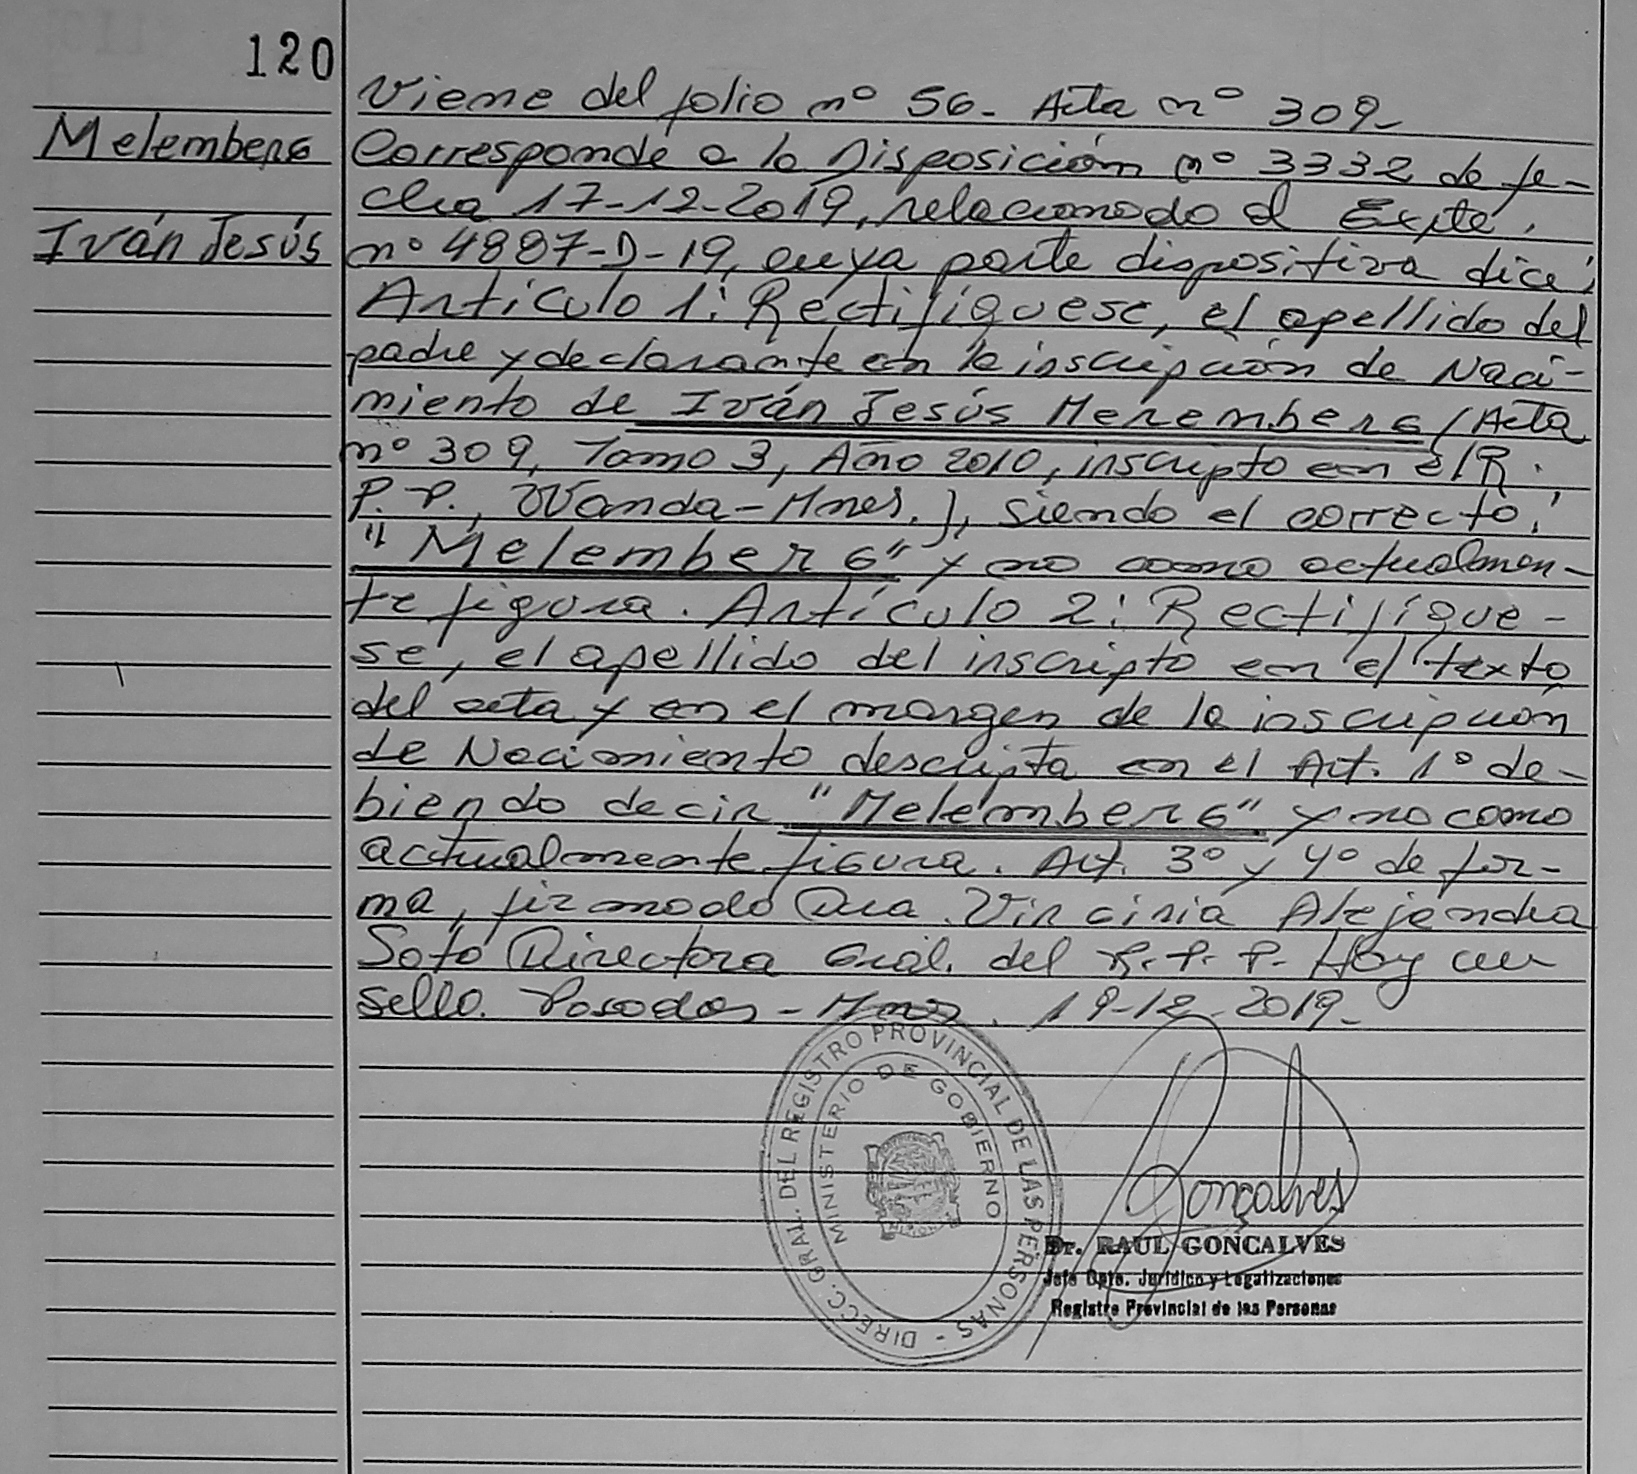 120
Melemberg
Iván Jesús
Viene del folio nº 56- Acta nº 309-
Corresponde a la Disposición nº 3332 de fe-
cha 17-12-2019, relacionado el Expte.
nº 4887-D-19, cuya parte dispositiva dice:
Artículo 1: Rectifíquese, el apellido del
padre y declarante en la inscripción de Naci-
miento de Iván Jesús Meremberg (Acta
nº 309, Tomo 3, Año 2010, inscripto en el R.
P.P., Wanda-Mnes.), siendo el correcto:
"Melemberg" y no como actualmen-
te figura. Artículo 2: Rectifíque-
se, el apellido del inscripto en el texto
del acta y en el margen de la inscripción
de Nacimiento descripta en el Art. 1º de-
biendo decir "Melemberg" y no como
actualmente figura. Art. 3º y 4º de for-
ma, firmado Dra. Virginia Alejandra
Soto Directora Gral. del R.P.P. Hay un
sello. Posadas-Mnes. 19-12-2019-
DIRECC. GRAL. DEL REGISTRO PROVINCIAL DE LAS PERSONAS -
MINISTERIO DE GOBIERNO
Gonçalves
Dr. RAUL GONÇALVES
Jefe Dpto. Jurídico y Legalizaciones
Registro Provincial de las Personas